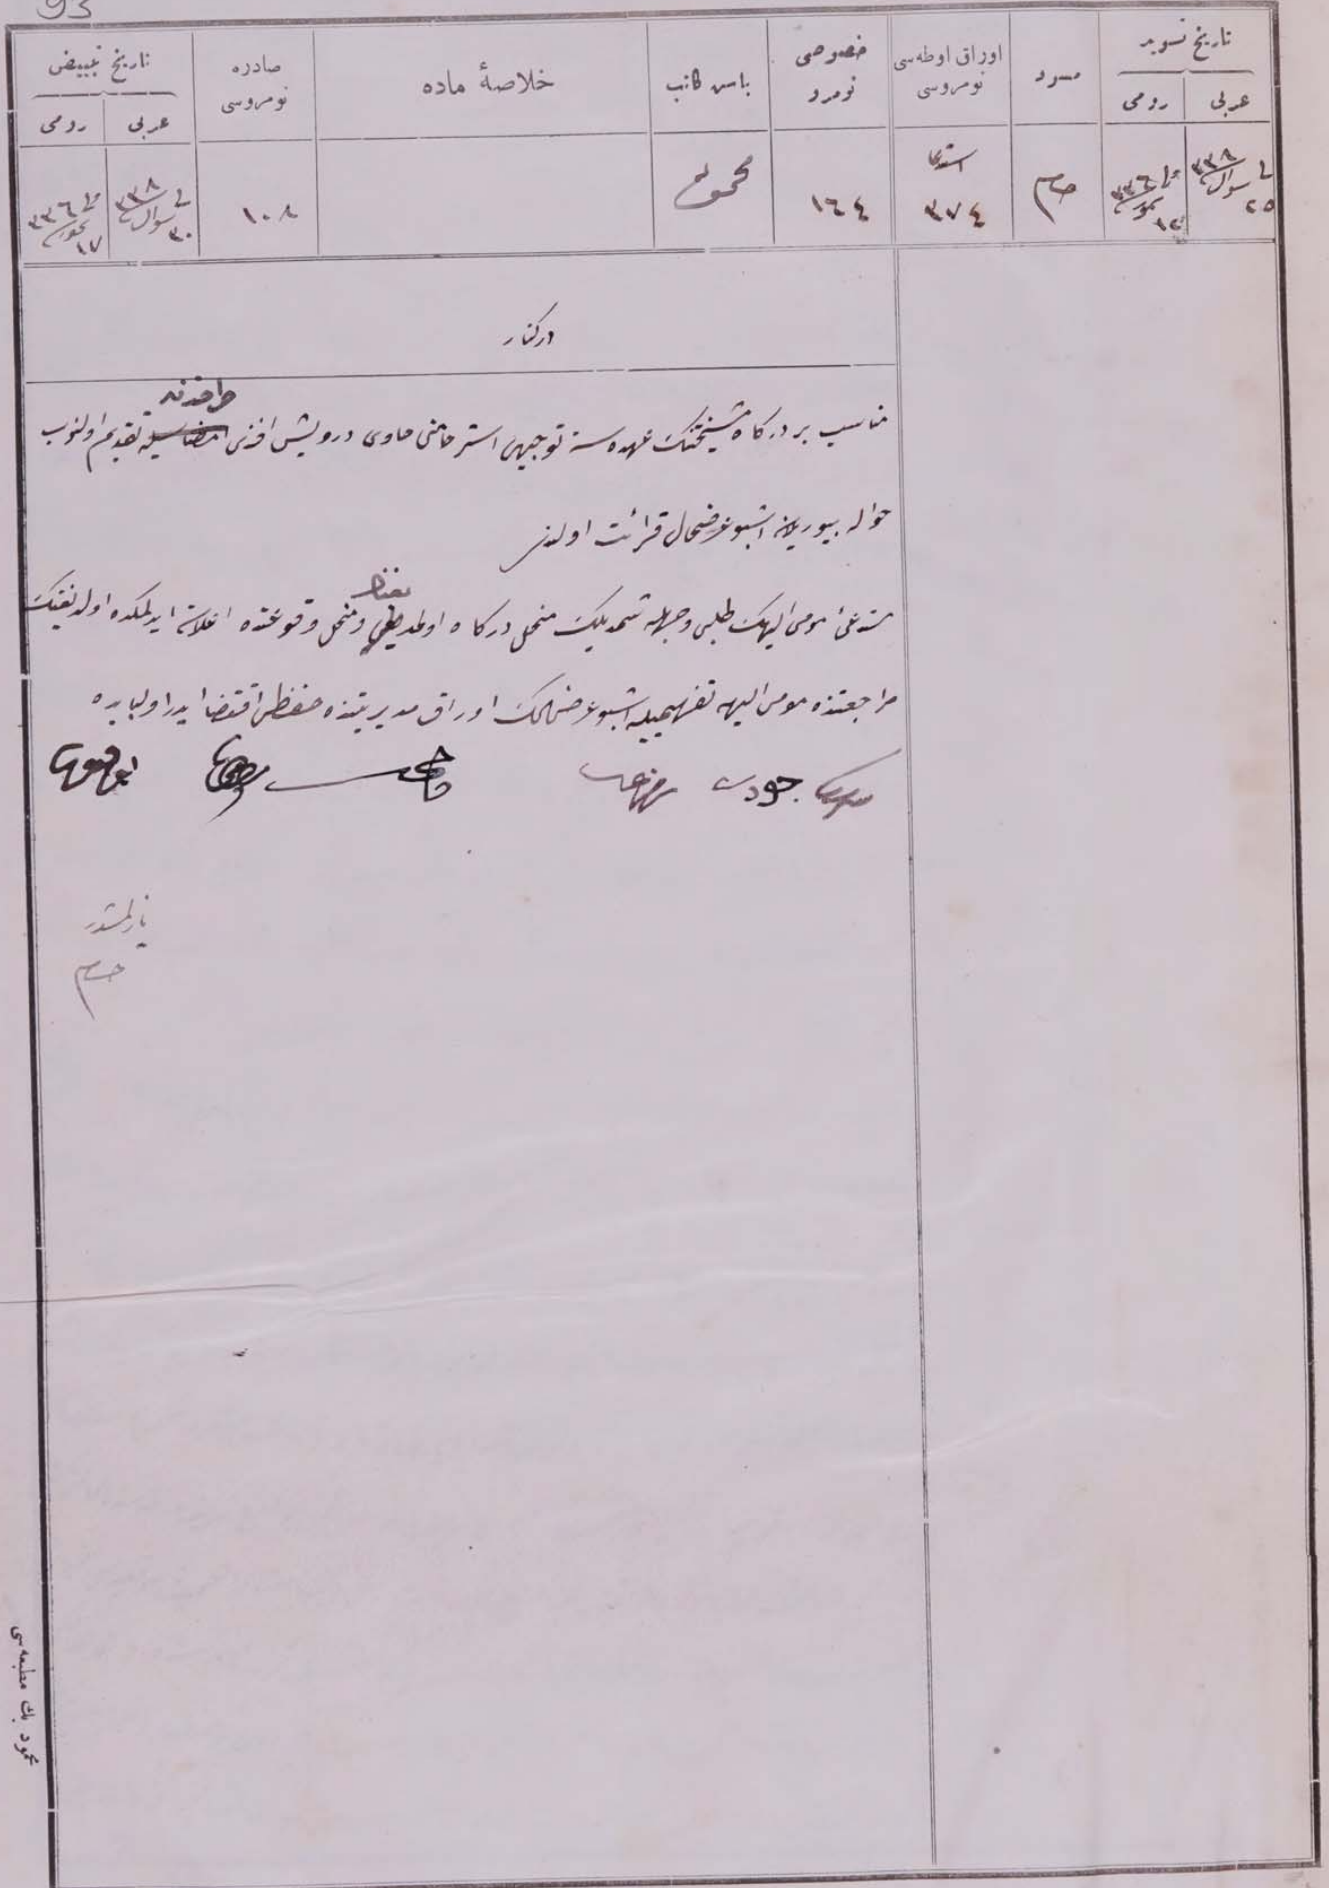 93
تاریخ تسوید
عربی
رومی
مسود
اوراق اوطه‌سی نومروسی
خصوصی نومرو
باش کاتب
خلاصهٔ ماده
صادره نومروسی
تاریخ تبییض
عربی
رومی
فی ٢٥ شوال ٣٣٨
١٢ تموز ٣٣٦
استدعا
٣٧٤
١٦٤
١٠٨
فی ٣٠ شوال ٣٣٨
١٧ تموز ٣٣٦
درکنار
طرفندن
مناسب بر درکاه مشیختنك عهده سنه توجیهی استرحامنی حاوی درویش افندی امضاسیله تقدیم اولنوب
حواله بیوریلان اشبو عرضحال قرائت اولندی
مستدعئ مومی الیهك طلبی وجهله شمدیلك منحل درکاه اولمدیغی ومنحل وقوعنده اعلان ایدلمکده اولدیغنك
مراجعتنده مومی الیهه تفهیمیله اشبو عرضحالك اوراق مدیریتنده حفظی اقتضا ایدر اولبابده
جودت
یازلمشدر
محمود بك مطبعه‌سی